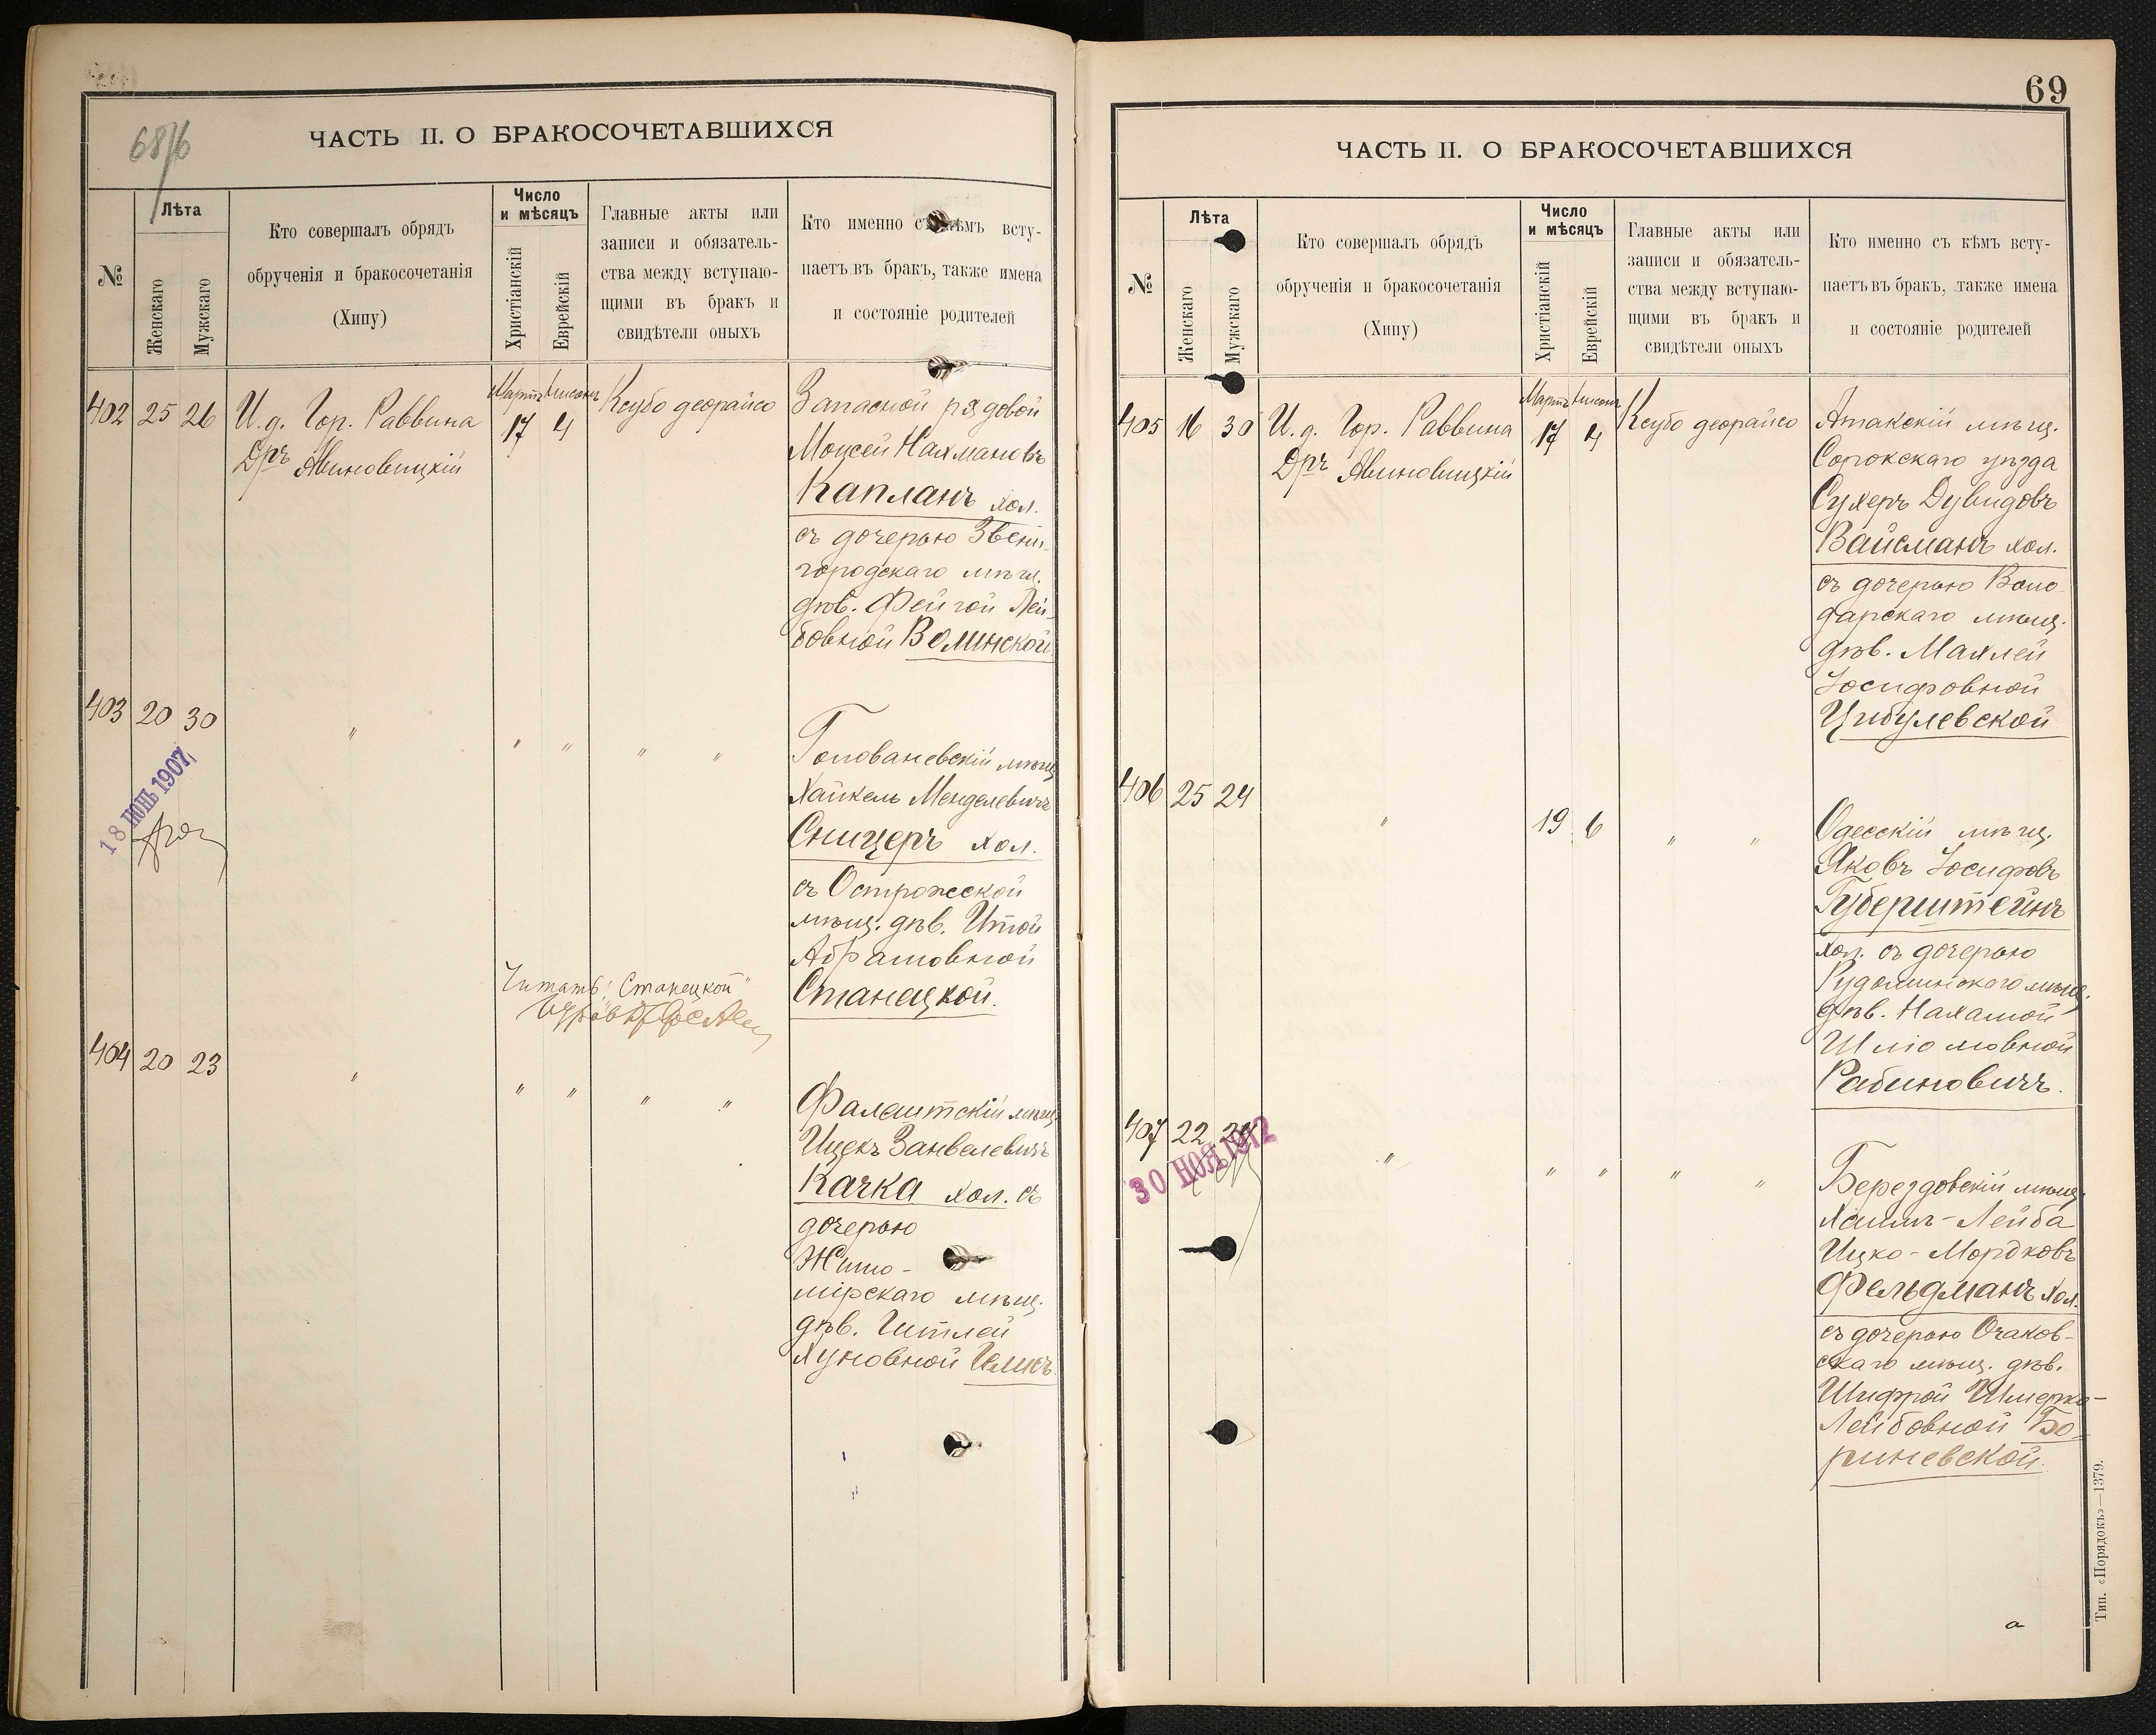 68/б
ЧАСТЬ II. О БРАКОСОЧЕТАВШИХСЯ
№
Лѣта
Женскаго
Мужскаго
Кто совершалъ обрядъ
обрученія и бракосочетанія
(Хипу)
Число
и мѣсяцъ
Христіанскій
Еврейскій
Главные акты или
записи и обязатель-
ства между вступаю-
щими въ бракъ и
свидѣтели оныхъ
Кто именно съ кѣмъ всту-
паетъ въ бракъ, также имена
и состояніе родителей
402 25 26
И. д. Гор. Раввина
Дръ Авиновицкій
Мартъ Нисонъ
17 4
Ксубо деорайсо
Запасной рядовой
Моисей Нахмановъ
Капланъ хол.
съ дочерью Звени-
городскаго мѣщ.
дѣв. Фейгой Лей-
бовной Волинской
403 20 30
" " " " "
18 ІЮНЬ 1907
Голованевскій мѣщ.
Хайкель Менделевичъ
Сницеръ хол.
съ Острожской
мѣщ. дѣв. Итой
Абрамовной
Станецкой.
Читать: "Станецкой"
404 20 23
" " " " "
Фалештскій мѣщ.
Ицекъ Занвелевичъ
Качка хол. съ
дочерью
Жито-
мірскаго мѣщ.
дѣв. Гитлей
Хуновной
69
ЧАСТЬ II. О БРАКОСОЧЕТАВШИХСЯ
№
Лѣта
Женскаго
Мужскаго
Кто совершалъ обрядъ
обрученія и бракосочетанія
(Хипу)
Число
и мѣсяцъ
Христіанскій
Еврейскій
Главные акты или
записи и обязатель-
ства между вступаю-
щими въ бракъ и
свидѣтели оныхъ
Кто именно съ кѣмъ всту-
паетъ въ бракъ, также имена
и состояніе родителей
405 16 30
И. д. Гор. Раввина
Дръ Авиновицкій
Мартъ Нисонъ
17 4
Ксубо деорайсо
Атакскій мѣщ.
Сорокскаго уѣзда
Сухеръ Дувидовъ
Вайсманъ хол.
съ дочерью Воло-
дарскаго мѣщ.
дѣв. Маллей
Іосифовной
Цибулевской
406 25 24
" 19 6 " "
Одесскій мѣщ.
Яковъ Іосифовъ
Губерштейнъ
хол. съ дочерью
Рудоминскаго мѣщ.
дѣв. Нахамой
Шліомовной
Рабиновичъ.
407 22
" " " " "
30 НОЯ 1912
Берездовскій мѣщ.
Хаимъ-Лейба
Ицко-Мордковъ
Фельдманъ хол.
съ дочерью Очаков-
скаго мѣщ. дѣв.
Шифрой Шмерко-
Лейбовной Бо-
риневской.
Тип. «Порядокъ»—1379.